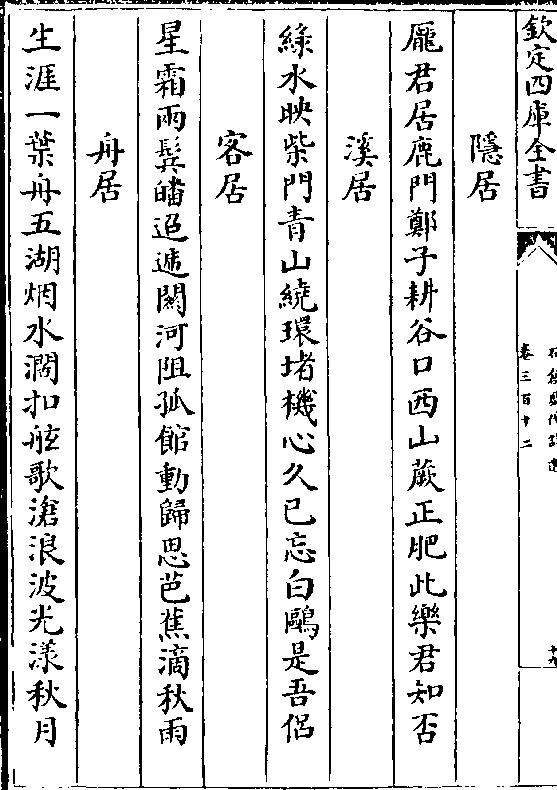 欽定四庫全書
卷三百十二
隱居
龐君居鹿門鄭子耕谷口西山蕨正肥此樂君知否
溪居
綠水映柴門青山繞環堵機心久已忘白鷗是吾侣
客居
星霜兩鬂皤迢遞關河阻孤館動歸思芭蕉滴秋雨
舟居
生涯一葉舟五湖烟水濶扣舷歌滄浪波光漾秋月